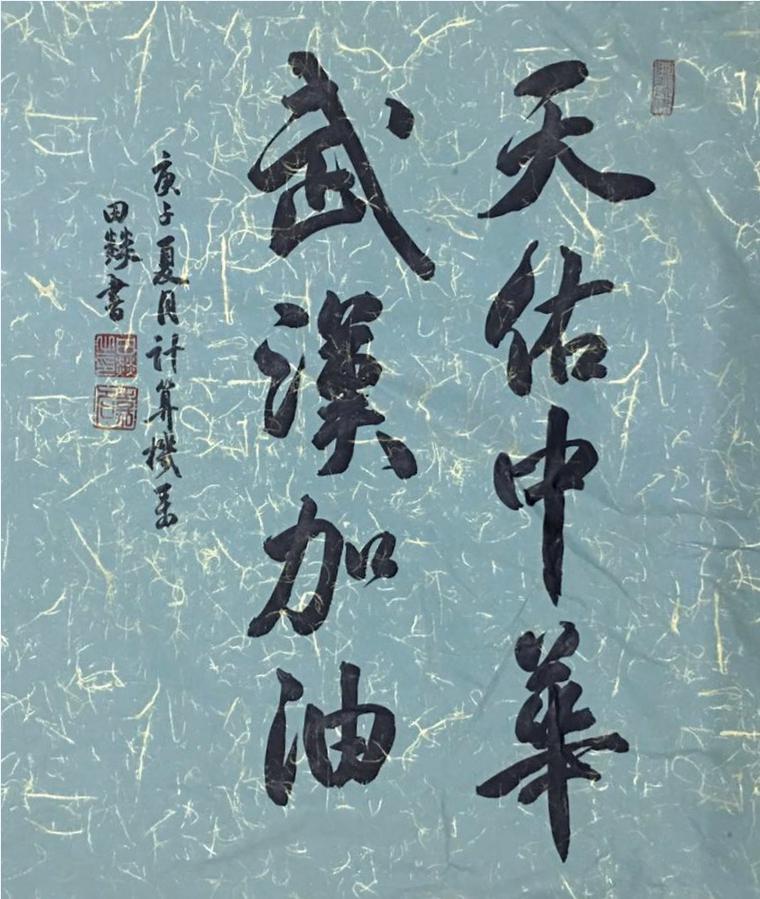 天佑中華
武漢加油
庚子夏月计算機系
田燚書